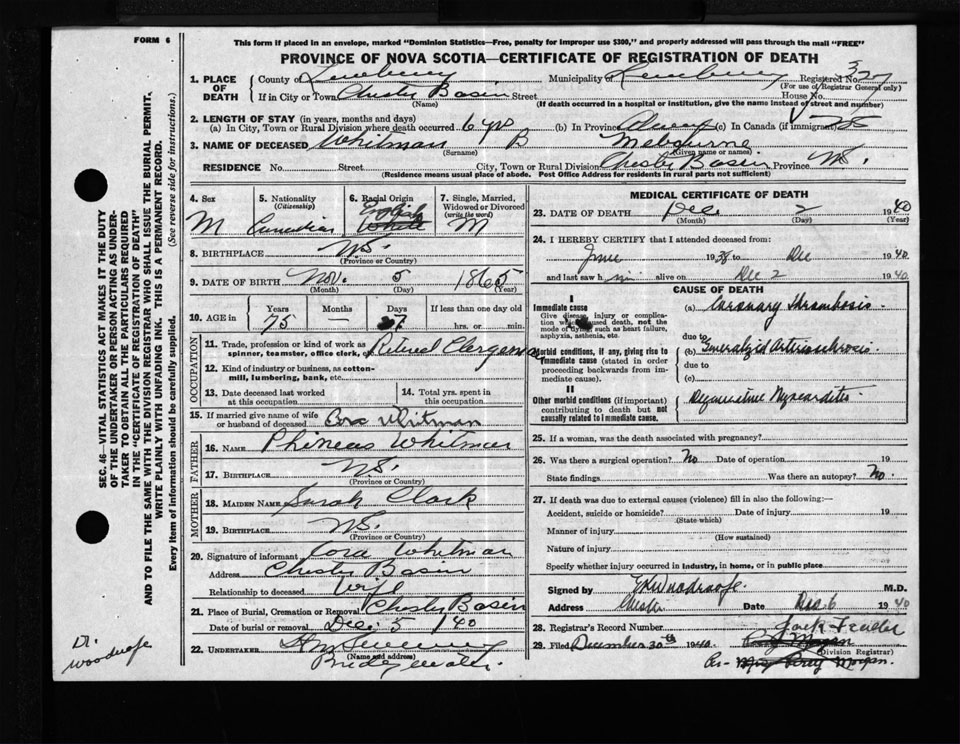 FORM 6
This form if placed in an envelope, marked "Dominion Statistics—Free, penalty for improper use $300," and properly addressed will pass through the mail "FREE"
PROVINCE OF NOVA SCOTIA—CERTIFICATE OF REGISTRATION OF DEATH
1. PLACE OF DEATH County of Lunenburg Municipality of Lunenburg Registered No. 327
(For use of Registrar General only)
If in City or Town Chester Basin Street House No.
(Name) (If death occurred in a hospital or institution, give the name instead of street and number)
2. LENGTH OF STAY (in years, months and days)
(a) In City, Town or Rural Division where death occurred 6 yrs (b) In Province Always (c) In Canada (if immigrant)
3. NAME OF DECEASED Whitman B Melbourne
(Surname) (Given name or names)
RESIDENCE No. Street City, Town or Rural Division Chester Basin Province N.S.
(Residence means usual place of abode. Post Office Address for residents in rural parts not sufficient)
4. Sex M
5. Nationality (Citizenship) Canadian
6. Racial Origin English White
7. Single, Married, Widowed or Divorced (write the word) M
8. BIRTHPLACE N.S.
(Province or Country)
9. DATE OF BIRTH Nov. 5 1865
(Month) (Day) (Year)
10. AGE in Years 75 Months — Days 27 If less than one day old hrs. or min.
OCCUPATION
11. Trade, profession or kind of work as spinner, teamster, office clerk, etc. Retired Clergeman
12. Kind of industry or business, as cotton-mill, lumbering, bank, etc.
13. Date deceased last worked at this occupation
14. Total yrs. spent in this occupation
15. If married give name of wife or husband of deceased Cora Whitman
FATHER
16. NAME Phineas Whitman
17. BIRTHPLACE N.S.
(Province or Country)
MOTHER
18. MAIDEN NAME Sarah Clark
19. BIRTHPLACE N.S.
(Province or Country)
20. Signature of informant Cora Whitman
Address Chester Basin
Relationship to deceased Wife
21. Place of Burial, Cremation or Removal Chester Basin
Date of burial or removal Dec. 5 1940
22. UNDERTAKER
(Name and address)
Bridgewater.
MEDICAL CERTIFICATE OF DEATH
23. DATE OF DEATH Dec. 2 1940
(Month) (Day) (Year)
24. I HEREBY CERTIFY that I attended deceased from:
June 1938 to Dec 1940
and last saw him alive on Dec 2 1940
CAUSE OF DEATH
I
Immediate cause
Give disease, injury or complication which caused death, not the mode of dying, such as heart failure, asphyxia, asthenia, etc.
(a) Coronary thrombosis
due to
Morbid conditions, if any, giving rise to immediate cause (stated in order proceeding backwards from immediate cause).
(b) Generalized Arteriosclerosis
due to
(c)
II
Other morbid conditions (if important) contributing to death but not causally related to immediate cause.
Degenerative Myocarditis
25. If a woman, was the death associated with pregnancy?
26. Was there a surgical operation? No Date of operation 19
State findings Was there an autopsy? No.
27. If death was due to external causes (violence) fill in also the following:—
Accident, suicide or homicide? Date of injury 19
(State which)
Manner of injury
(How sustained)
Nature of injury
Specify whether injury occurred in industry, in home, or in public place
Signed by Woodroofe M.D.
Address Chester Date Dec. 6 1940
28. Registrar's Record Number
29. Filed December 30th 1940
(Division Registrar)
Percy Morgan
SEC. 46—VITAL STATISTICS ACT MAKES IT THE DUTY
OF THE UNDERTAKER OR PERSON ACTING AS UNDER-
TAKER TO OBTAIN ALL THE PARTICULARS REQUIRED
IN THE "CERTIFICATE OF REGISTRATION OF DEATH"
AND TO FILE THE SAME WITH THE DIVISION REGISTRAR WHO SHALL ISSUE THE BURIAL PERMIT.
WRITE PLAINLY WITH UNFADING INK. THIS IS A PERMANENT RECORD.
Every item of information should be carefully supplied. (See reverse side for instructions.)
Dr. Woodroofe